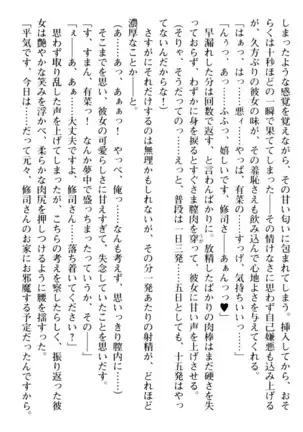 しまったような感覚を覚えながら、その甘い匂いに包まれてしまう。挿入してか
らくは十秒ほどの一瞬で果ててしまった――その情けなさに思わず自己嫌悪も込み上げる
が、久方ぶりの彼女の味が、その羞恥さえも飲み込んで心地よさを与えてくれる。
「んぅっ、あっ……ふふっ、嬉しいです、修司さ――あぁんっっ♥」
「はっ、はっ……悪ぃ、やっぱ、有菜の……すっげ、気持ちいい……」
早漏れした分は回数で返す、と言わんばかりに、放精したばかりの肉棒はまだ硬さを失
っておらず、わずかに身を捩るとすぐさま膣肉を穿って、彼女に甘い声を上げさせる。
（そりゃ、そうだっての……えっと、普段は一日三発……五日としても、十五発はやっ
てないんだからな！）
さすがにそれだけするのは無理かもしれないが、その分、一発あたりの射精が、どれほど
濃厚なことか――と。
「あ……あっ、あぁぁっ！　やっべ、俺っ……なんも考えず、思いっきり膣内に……」
そこまでを思い、彼女の可愛らしさに甘えすぎて、失念していたことを思いだす。
「す、すまん、有菜！　なんか夢中で盛っちまってっていうか、その――」
「んっ、あっ、ああぁっ……大丈夫ですよ、修司さん……落ち着いてください？」
思わず取り乱した声を上げてしまったが、こちらの考えを察したらしく、振り返った彼
女は艶やかな笑みを浮かべ、柔らかな肉尻を押しつけるように腰を揺すった。
「平気です、今日は……だって元々、修司さんのお家にお邪魔する予定だったんですから。